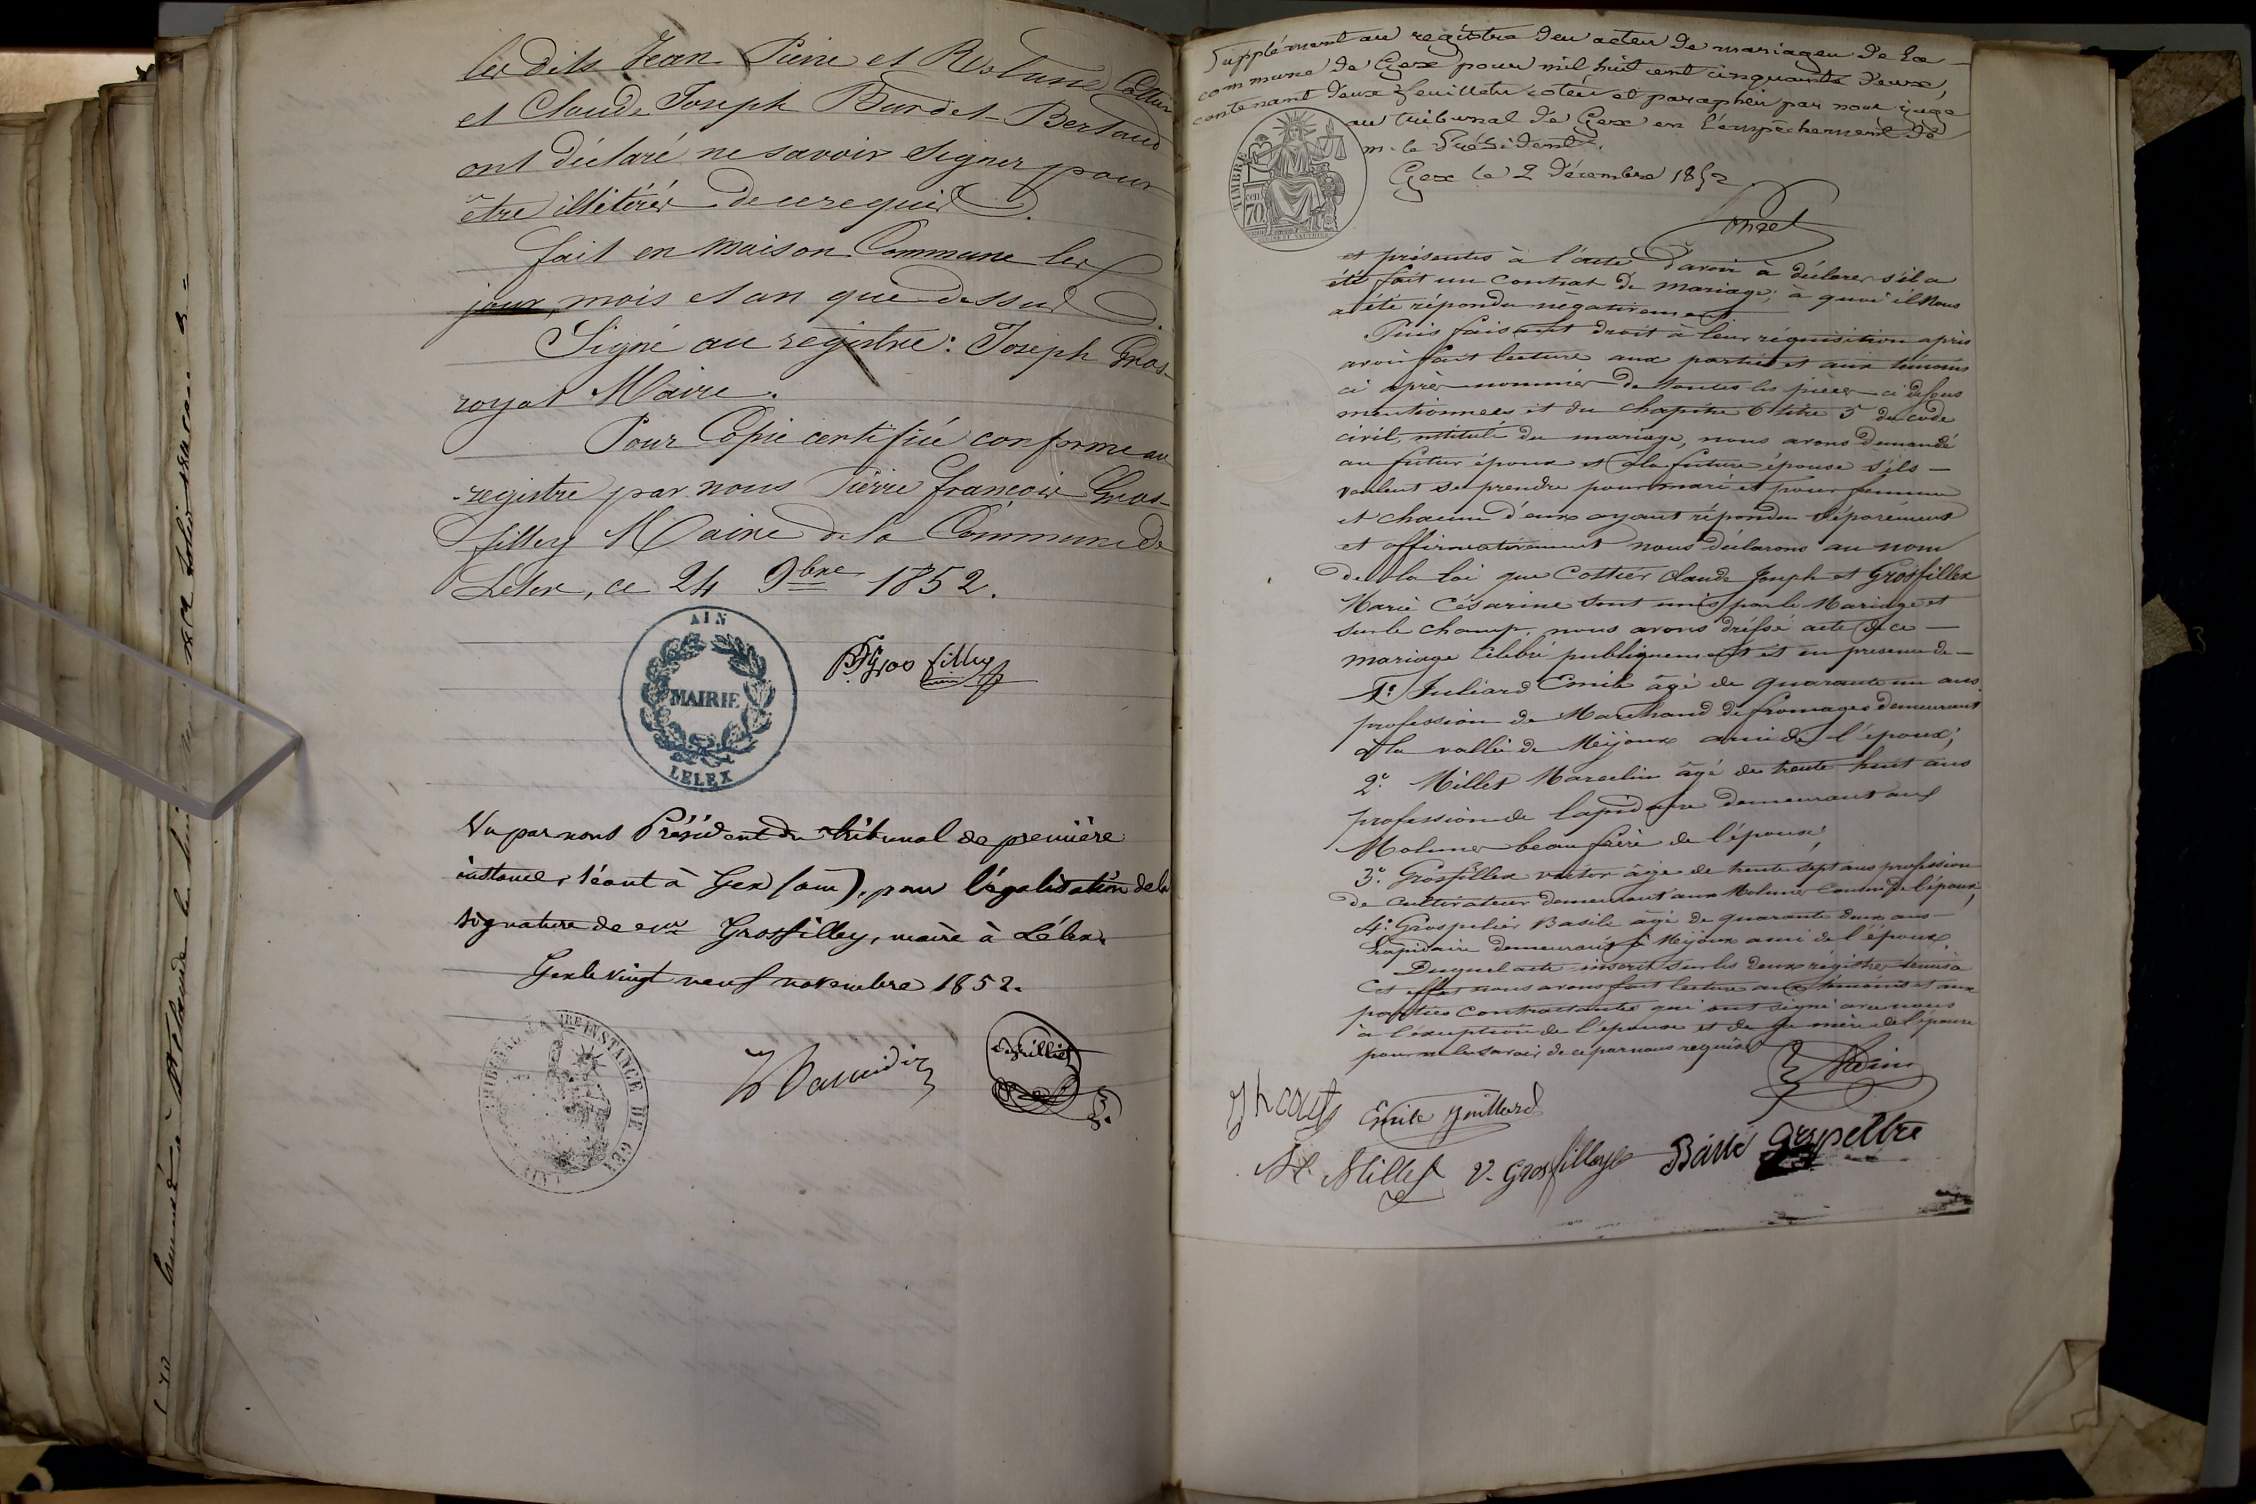 les dits Jean Pierre et Rolande Cottier
et Claude Joseph Burdet-Bertaud
ont déclaré ne savoir signer pour
être illétérés de ce requis.
fait en maison Commune les
jour, mois et an que dessus.
Signé au registre : Joseph Gros-
royat Maire.
Pour Copie certifiée conforme au
registre par nous Pierre françois Gros-
filley Maire de la Commune de
Lelex, ce 24 9bre 1852.
AIN
MAIRIE
LELEX
PF Grosfilley
Vu par nous Président du tribunal de première
instance, séant à Gex (ain), pour légalisation de la
signature de mr Grosfilley, maire à Lélex.
Gex le vingt neuf novembre 1852.
TRIBUNAL DE 1RE INSTANCE DE GEX
Supplément au registre des actes de mariages de la
commune de Gex pour mil huit cent cinquante deux,
contenant deux feuillets cotés et paraphés par nous juge
au tribunal de Gex en l'empêchement de
m. le Président.
Gex le 2 décembre 1852
TIMBRE
70
et présentes à l'acte d'avoir à déclarer s'il a
été fait un contrat de mariage; à quoi il nous
a été répondu négativement
Puis faisant droit à leur réquisition après
avoir fait lecture aux parties et aux témoins
ci après nommés de toutes les pièces ci dessus
mentionnées et du chapitre 6 titre 5 du code
civil, intitulé du mariage, nous avons demandé
au futur époux et à la future épouse s'ils
veulent se prendre pour mari et pour femme
et chacun d'eux ayant répondu séparément
et affirmativement nous déclarons au nom
de la loi que Cottier Claude Joseph et Grosfillex
Marie Césarine sont unis par le Mariage et
sur le champ, nous avons dréssé acte de ce
mariage célébré publiquement et en présence de
1.° Juliard Emile âgé de quarante un ans
profession de Marchand de fromages demeurant
à la vallée de Mijoux ami de l'époux;
2.° Millet Marcelin âgé de trente huit ans
profession de lapidaire demeurant aux
Molunes beau frère de l'époux;
3.° Grosfillex victor âgé de trente sept ans profession
de cultivateur demeurant aux Molunes cousin de l'époux,
4.° Grospelier Basile âgé de quarante deux ans
Lapidaire demeurant à Mijoux ami de l'époux.
Duquel acte inscrit sur les deux régistres tenus à
cet effet nous avons fait lecture aux témoins et aux
parties contractantes qui ont signé avec nous
à l'éxception de l'épouse et de la mère de l'épouse
pour ne le savoir de ce par nous requises
Emile Juillard
M. Millet V. Grosfilleyx